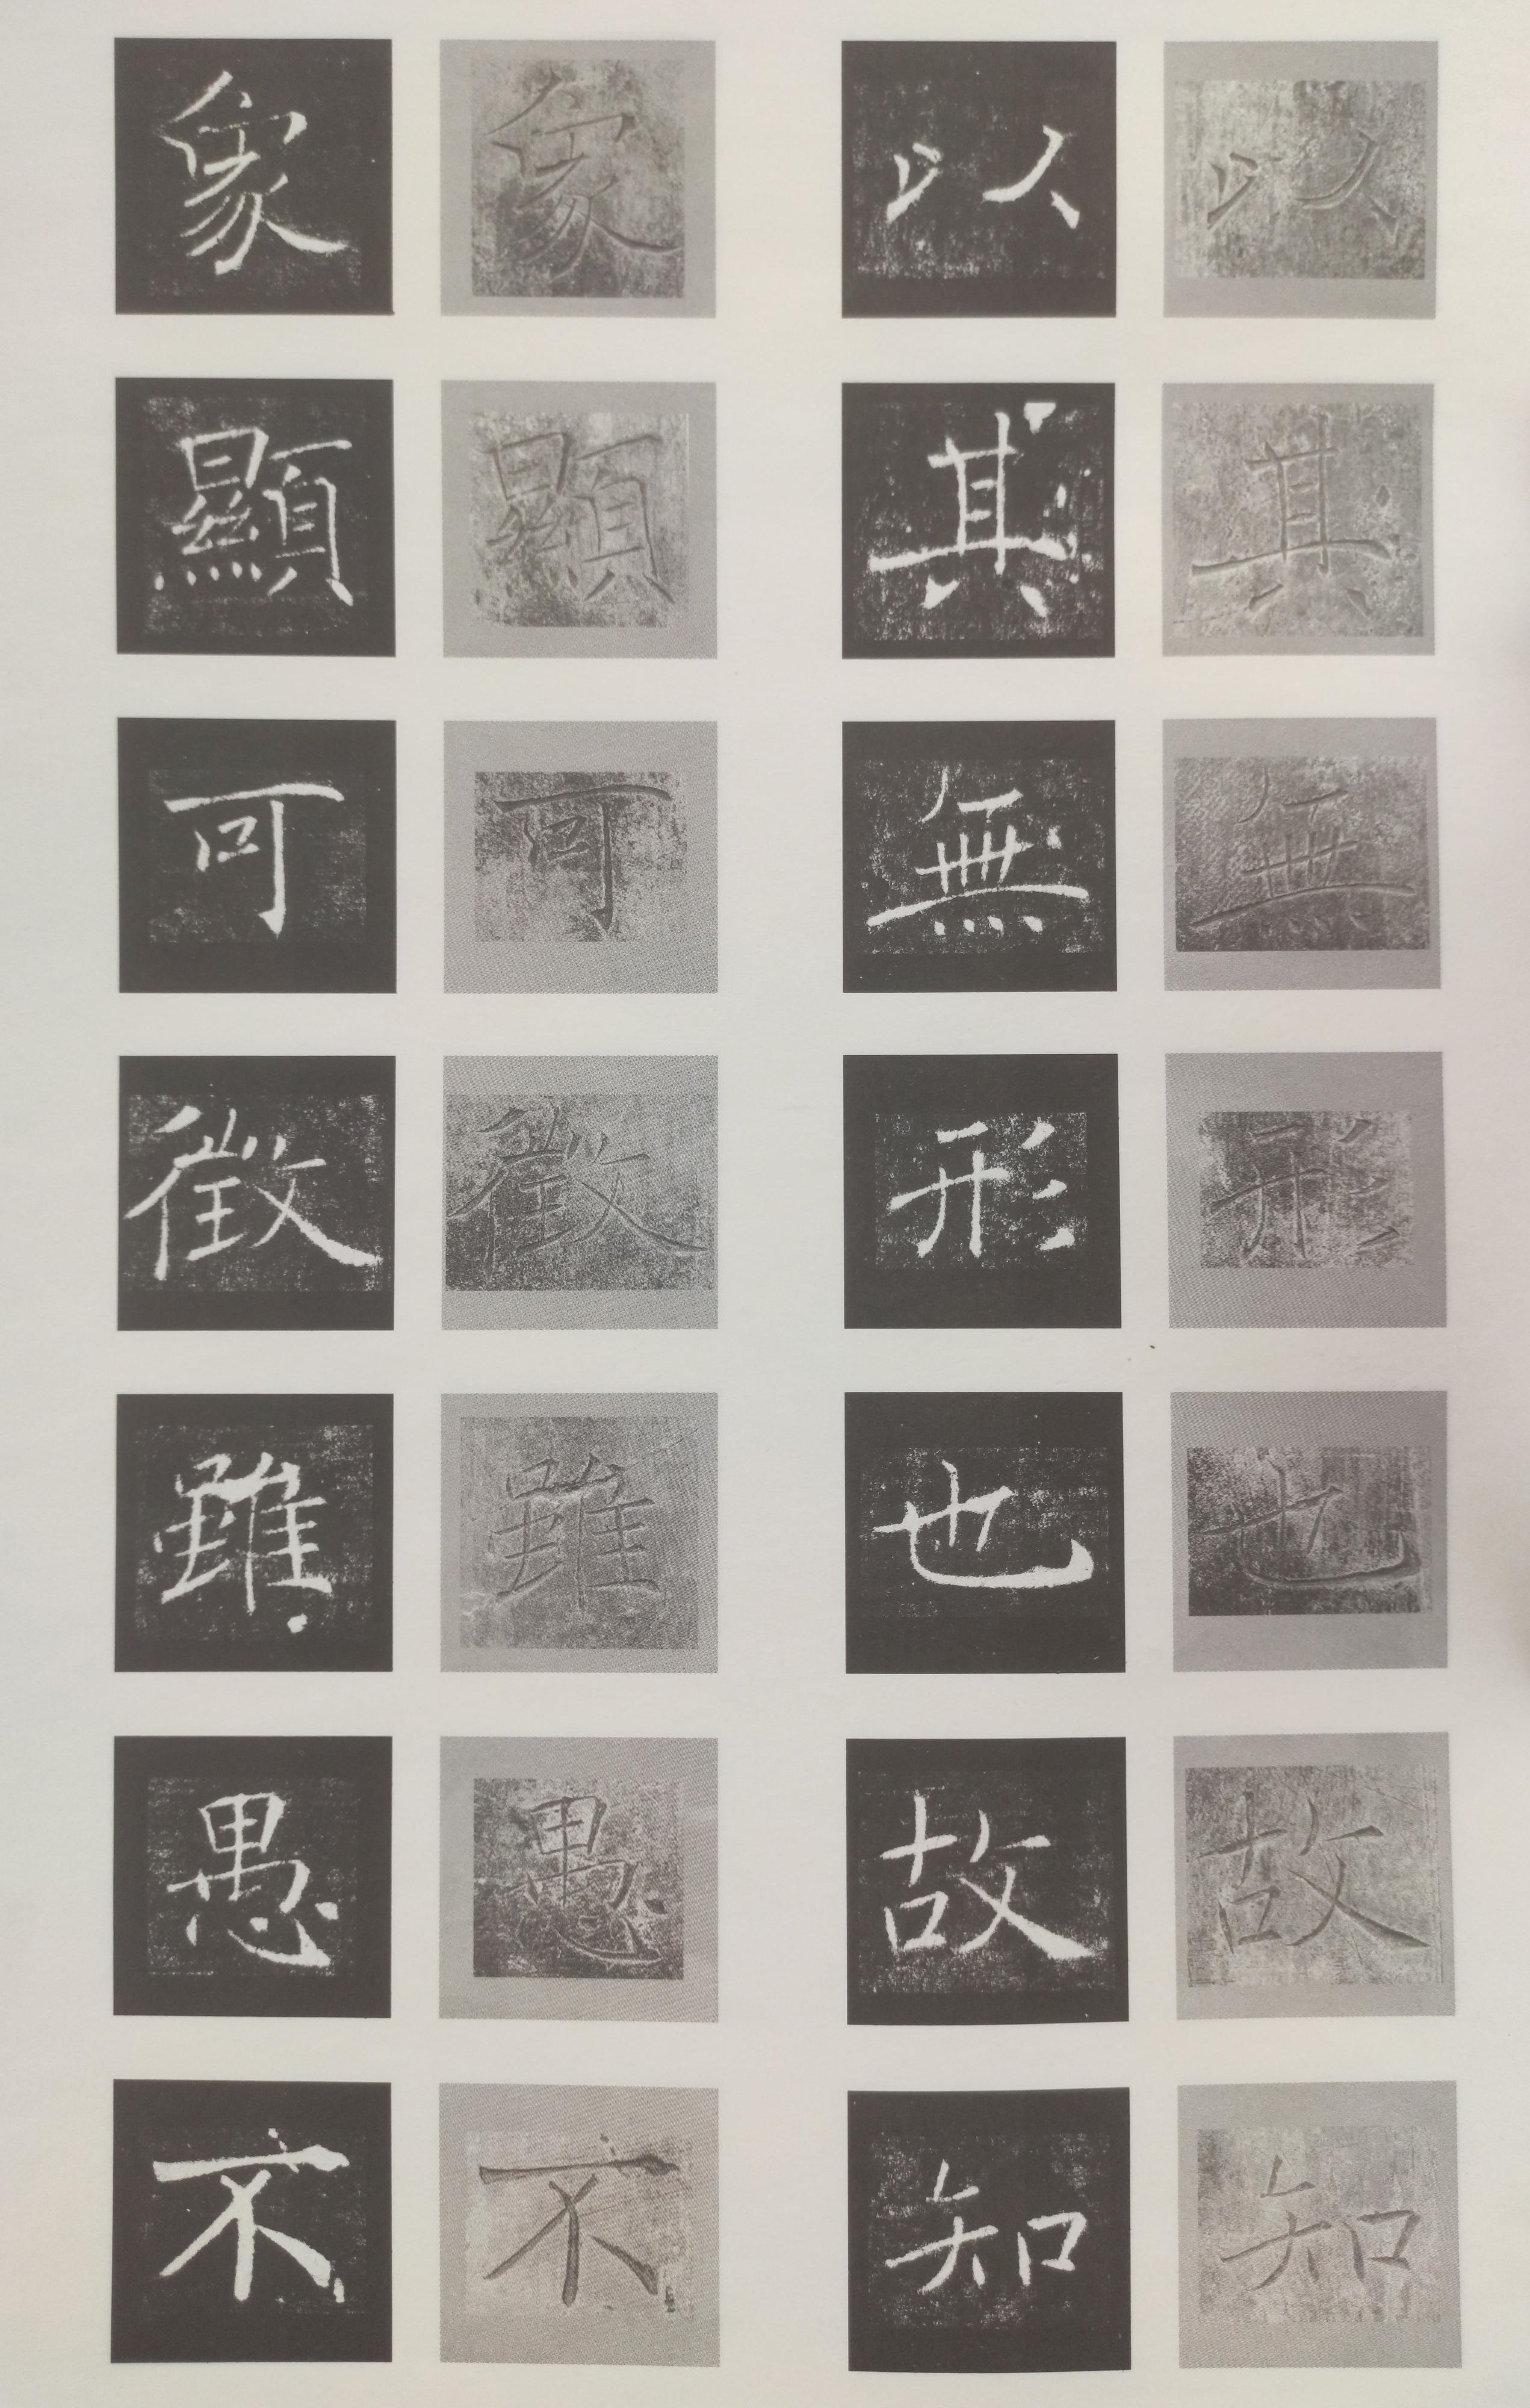 以其無形也故知
以其無形也故知
象顯可徵雖愚不
象顯可徵雖愚不